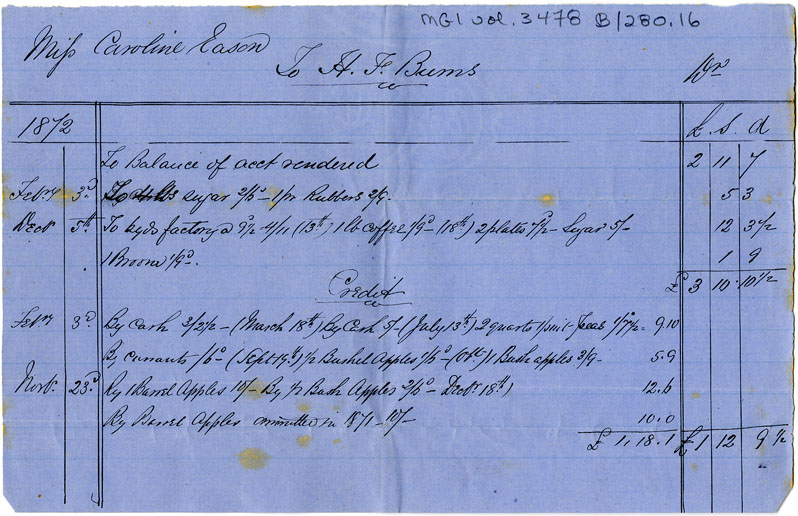 MG1 vol. 3478 B/280.16
Miss Caroline Eason
To H. F. Bums Dr
1872 £ S. d
To Balance of acct rendered 2 11 7
Febry 3d sugar 2/6d - 1 pr Rubbers 2/9. 5 3
Decr 5th To factory 4/11 (13th) 1 lb coffee 1/9d - (18th) 2 plates - Sugar 5/- 12 3 1/2
1 Broom 1/9d. 1 9
Credit £ 3 10 10 1/2
Febry 3d. By Cash 3/2 1/2 - (March 18th) By Cash 5/- (July 13th) 2 quarts 1/7 1/2 = 9.10
By currants /6d - (Sept 19th) 1/2 Bushel Apples 1/6d - 1 Bush apples 3/9- 5.9
Novr. 23d By 1 Barrel Apples 10/- By 1/2 Bush Apples 2/6d - Decr 18th) 12.6
By Barrel Apples ommitted in 1871 - 10/- 10.0
£ 1.18.1 £ 1 12 9 1/2